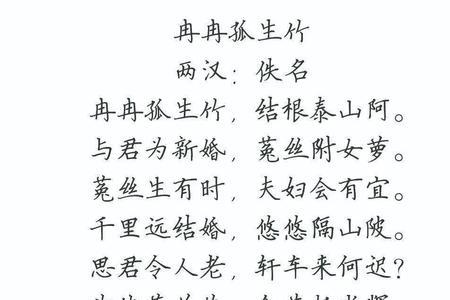 冉冉孤生竹
两汉：佚名
冉冉孤生竹，结根泰山阿。
与君为新婚，菟丝附女萝。
菟丝生有时，夫妇会有宜。
千里远结婚，悠悠隔山陂。
思君令人老，轩车来何迟？